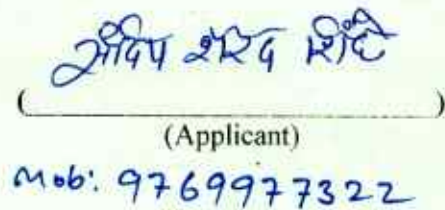 संदिप शरद शिंदे
(                    )
(Applicant)
Mob: 9769977322